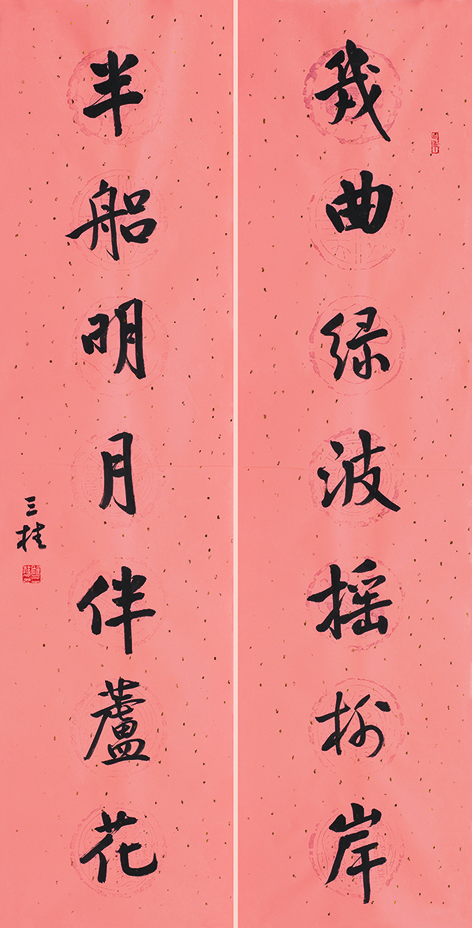 幾曲绿波摇柳岸
半船明月伴蘆花
三桂